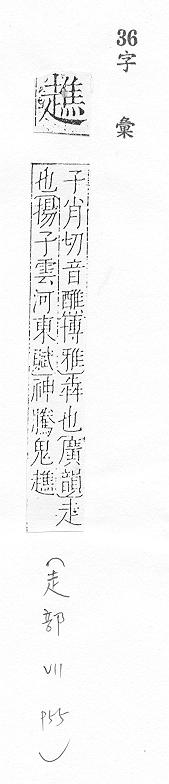 36
字彙
趭
子肖切音醮博雅犇也廣韻走
也揚子雲河東賦神騰鬼趭
(走部 VII P55)